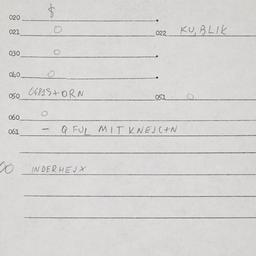 020 $
021 0 022 KU,BLIK
030 0
040 0
050 051 0
060 0
061 - Q FUL MIT KNEJC+N
00 INDERHEJX